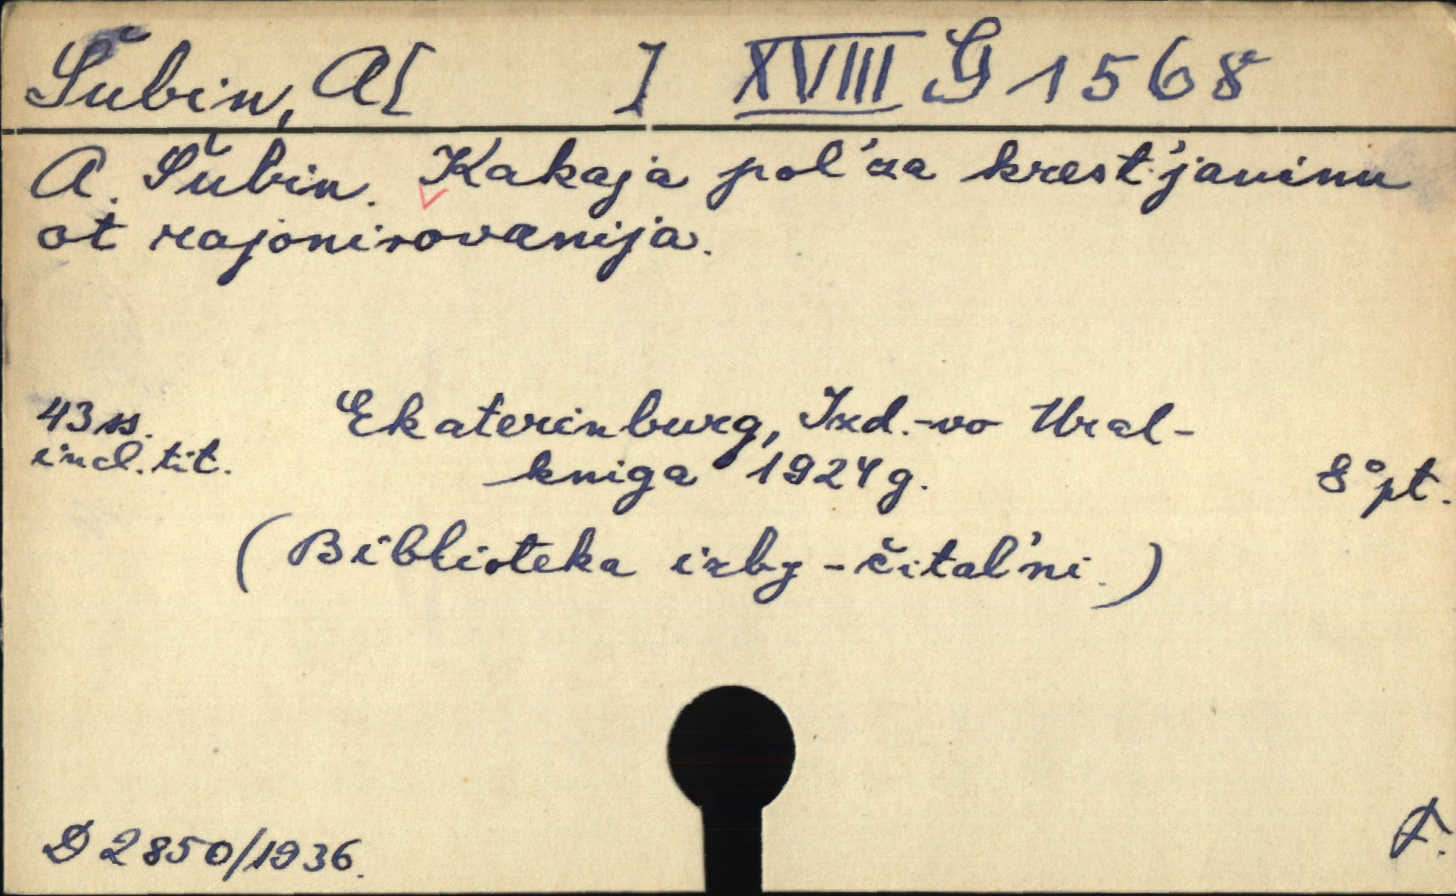 Šubin, A[ ] XVIII G 1568
A. Šubin. Kakaja pol'za krest'janinu
ot rajonirovanija.
43 ss. Ekaterinburg, Izd.-vo Ural-
incl. tit. kniga 1924 g. 8° pt.
(Biblioteka izby-čital'ni.)
D 2850/1936.